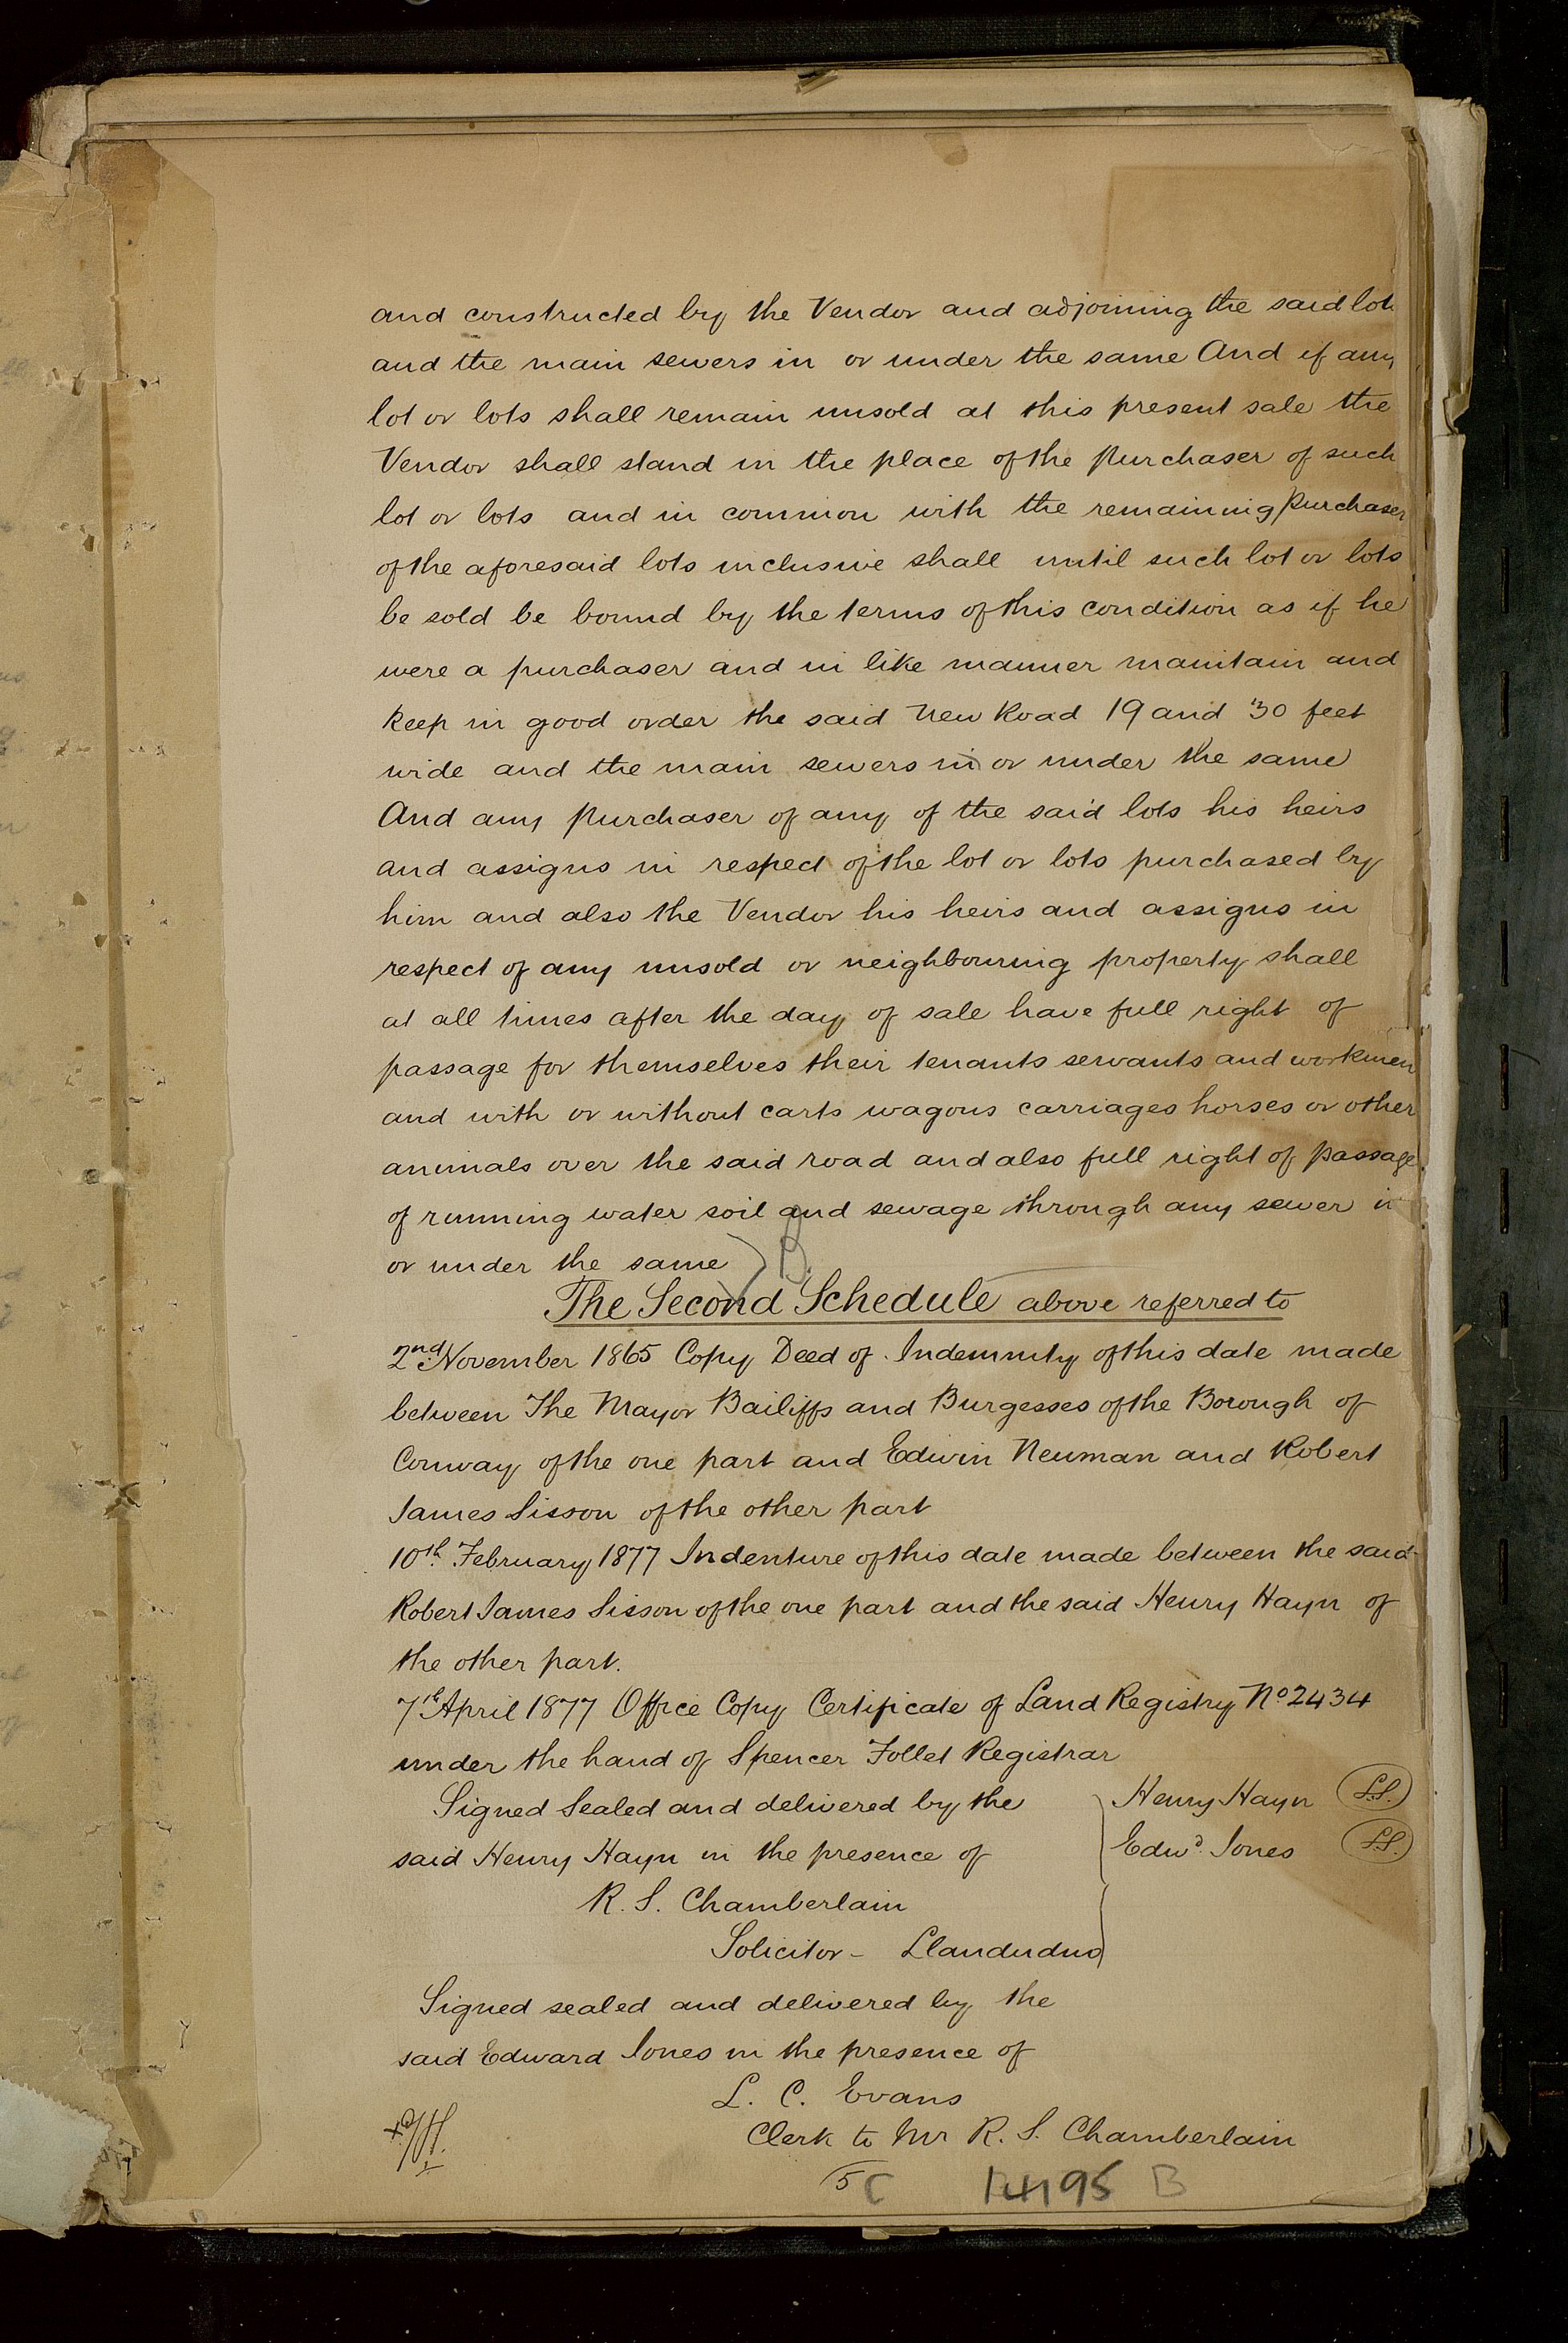 and constructed by the Vendor and adjoining the said lots
and the main sewers in or under the same And if any
lot or lots shall remain unsold at this present sale the
Vendor shall stand in the place of the Purchaser of such
lot or lots and in common with the remaining Purchasers
of the aforesaid lots inclusive shall until such lot or lots
be sold be bound by the terms of this condition as if he
were a purchaser and in like manner maintain and
keep in good order the said New Road 19 and 30 feet
wide and the main sewers in or under the same
And any Purchaser of any of the said lots his heirs
and assigns in respect of the lot or lots purchased by
him and also the Vendor his heirs and assigns in
respect of any unsold or neighbouring property shall
at all times after the day of sale have full right of
passage for themselves their tenants servants and workmen
and with or without carts wagons carriages horses or other
animals over the said road and also full right of passage
of running water soil and sewage through any sewer in
or under the same
The Second Schedule above referred to
2nd November 1865 Copy Deed of Indemnity of this date made
between The Mayor Bailiffs and Burgesses of the Borough of
Conway of the one part and Edwin Neuman and Robert
James Sisson of the other part
10th February 1877 Indenture of this date made between the said
Robert James Sisson of the one part and the said Henry Hayn of
the other part.
7th April 1877 Office Copy Certificate of Land Registry No 2434
under the hand of Spencer Follet Registrar
Signed Sealed and delivered by the Henry Hayn L.S.
said Henry Hayn in the presence of Edwd Jones L.S.
R. S. Chamberlain
Solicitor - Llandudno
Signed sealed and delivered by the
said Edward Jones in the presence of
L. C. Evans
Clerk to Mr R. S. Chamberlain
5 C 14195 B